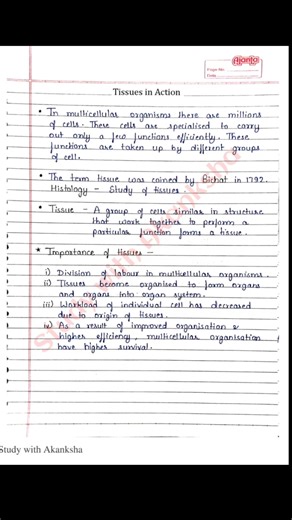 Ajanta
Page No.
Date
Tissues in Action
• In multicellular organisms there are millions
of cells. These cells are specialised to carry
out only a few functions efficiently. These
functions are taken up by different groups
of cell.
• The term tissue was coined by Bichat in 1792.
Histology - Study of tissues.
• Tissue - A group of cells similar in structure
that work together to perform a
particular function forms a tissue.
* Importance of tissues -
i) Division of labour in multicellular organisms.
ii) Tissues become organised to form organs
and organs into organ system.
iii) Workload of individual cell has decreased
due to origin of tissues.
iv) As a result of improved organisation &
higher efficiency, multicellular organisation
have higher survival.
Study with Akanksha
Study with Akanksha